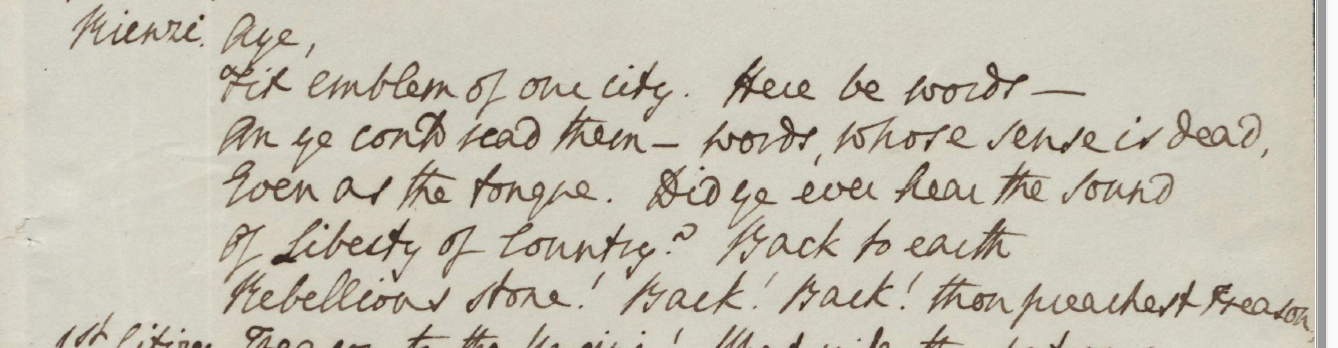 Rienzi. Aye,
Fit emblem of our city. Here be words —
An ye could read them — words, whose sense is dead,
Even as the tongue. Did ye ever hear the sound
Of Liberty of Country? Back to earth
Rebellious stone! Back! Back! thou preachest treason,
1st Citizen